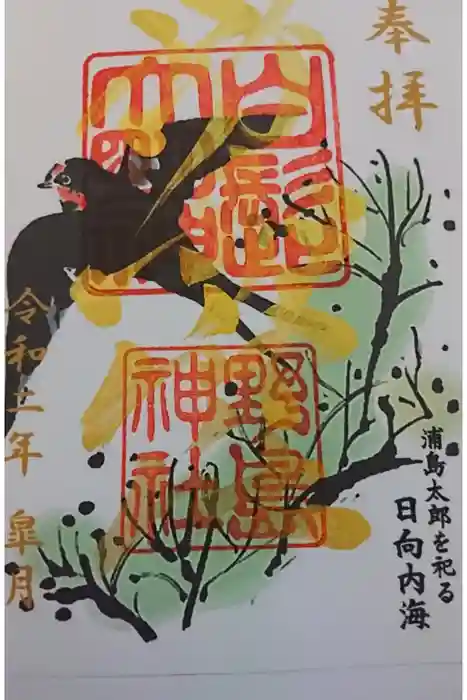 奉拝
白鬚
野島
神社
浦島太郎を祀る
日向内海
令和二年 皐月